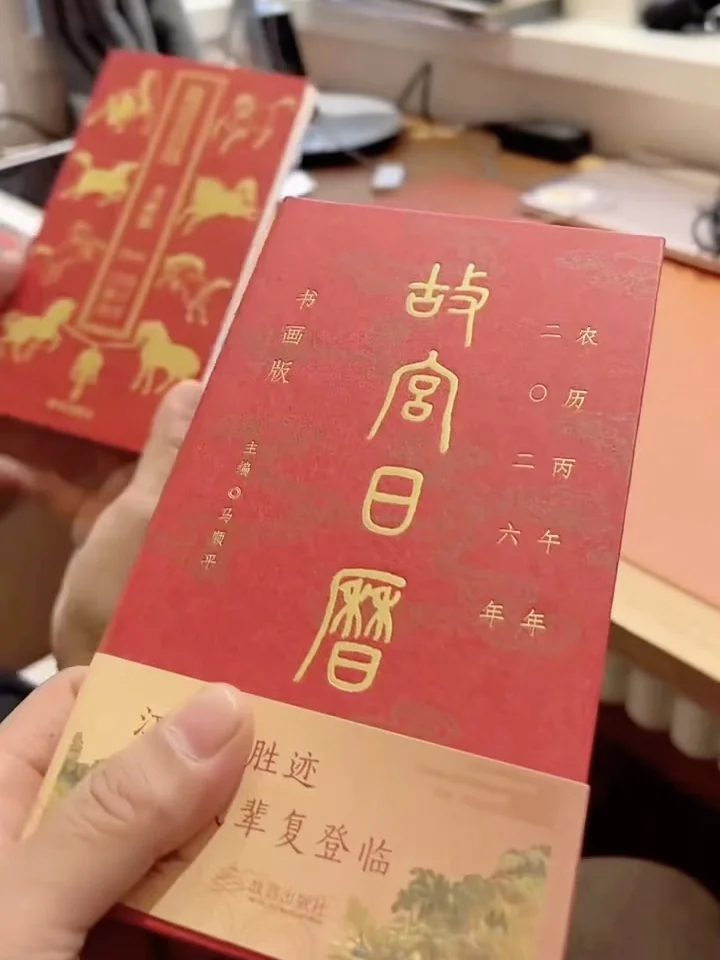 故宫日曆
书画版
主编◎马顺平
农历丙午年
二〇二六年
胜迹
辈复登临
故宫出版社